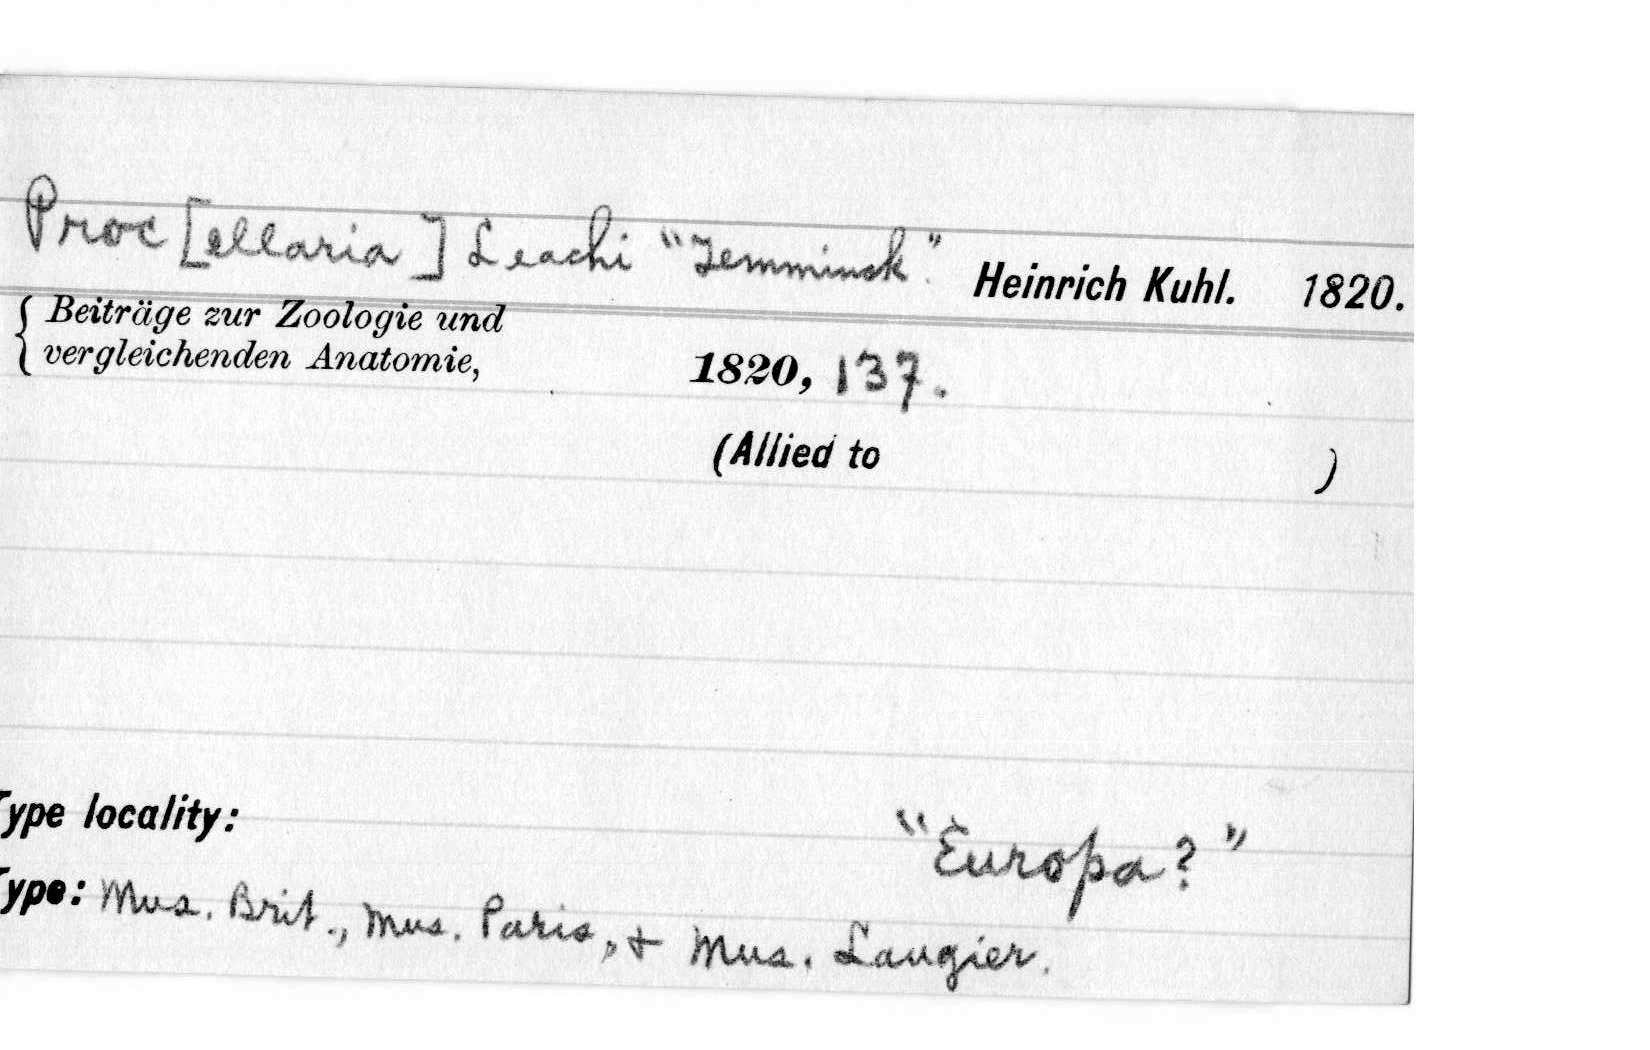 Proc [ellaria] Leachi "Temminck". Heinrich Kuhl. 1820.
{ Beiträge zur Zoologie und
vergleichenden Anatomie, 1820, 137.
(Allied to )
Type locality: "Europa?"
Type: Mus. Brit., Mus. Paris, & Mus. Laugier.